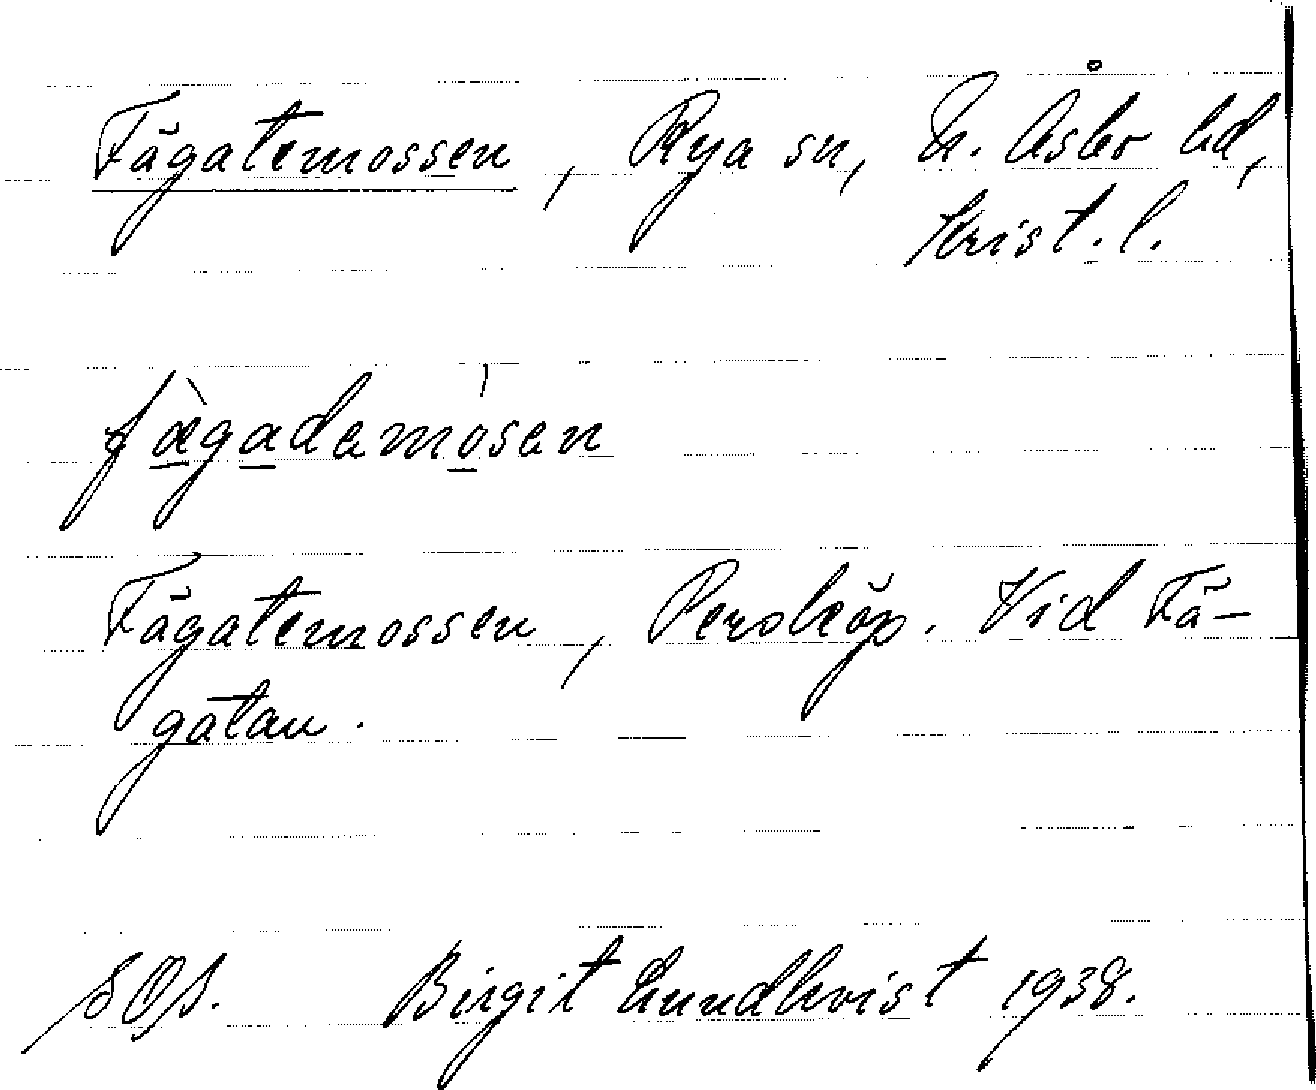 Fägatemossen, Rya sn, N. Åsbo hd,
Krist. l.
fàgademósen
Fägatemossen, Perstorp. Vid Fä-
gatan.
SOS. Birgit Lundkvist 1938.